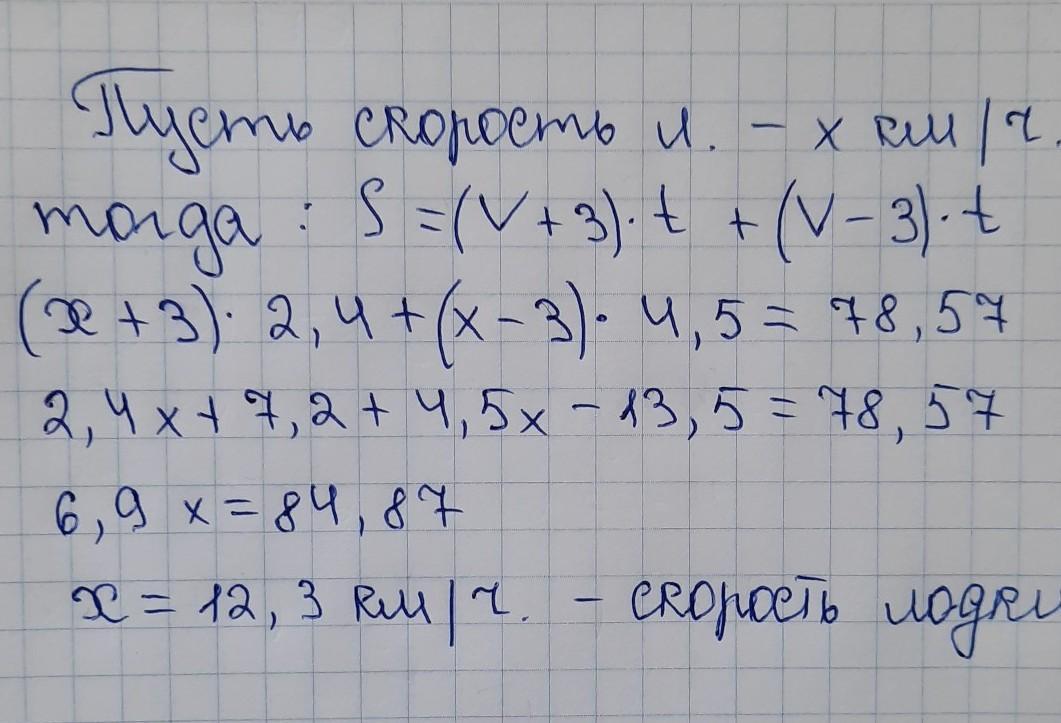 Пусть скорость л. - х км/ч.
тогда: S = (V + 3) · t + (V - 3) · t
(x + 3) · 2,4 + (x - 3) · 4,5 = 78,57
2,4x + 7,2 + 4,5x - 13,5 = 78,57
6,9 x = 84,87
x = 12,3 км/ч. - скорость лодки